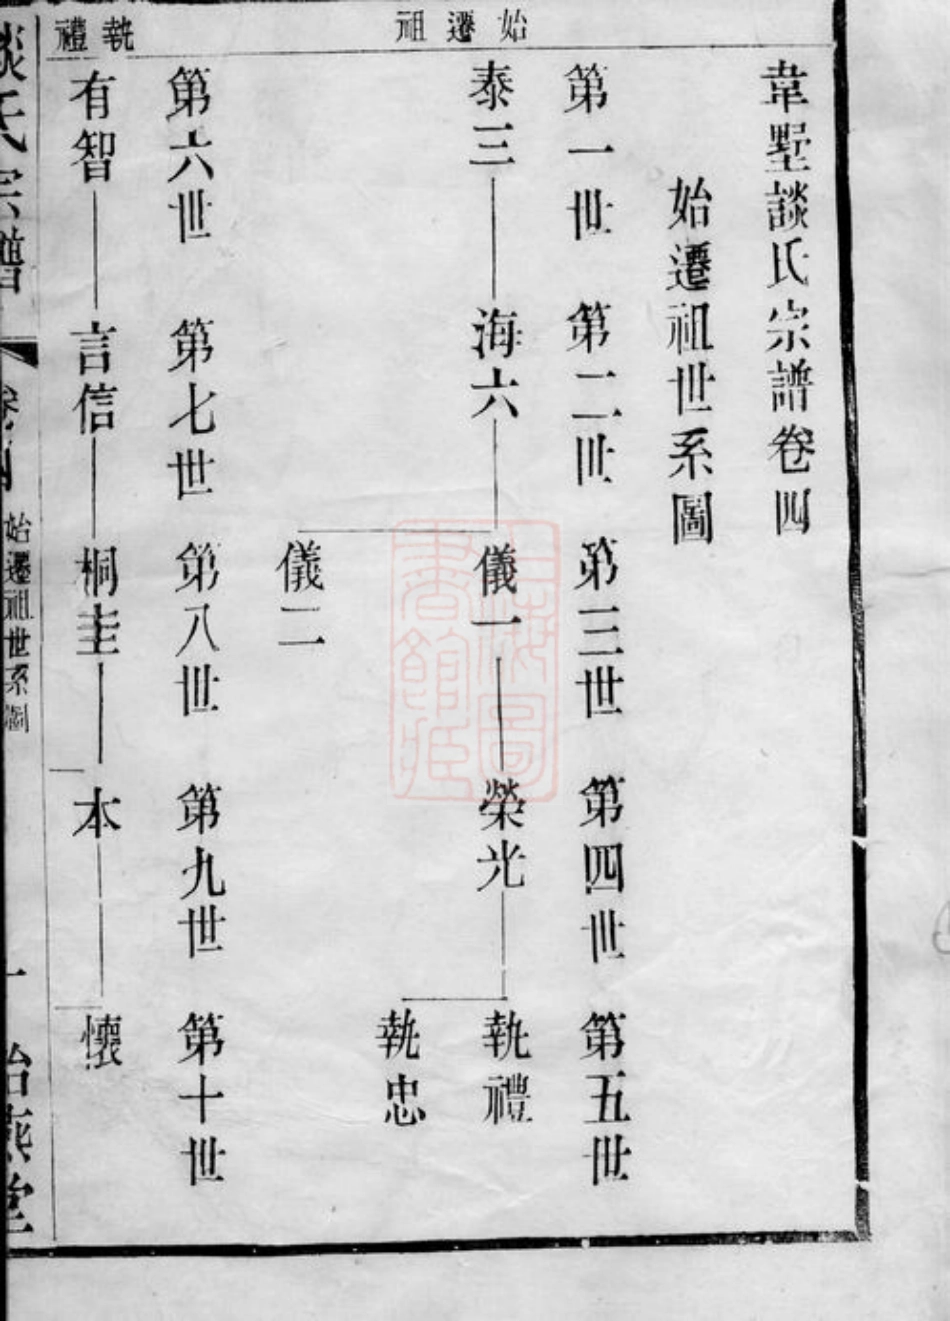 韋墅談氏宗譜卷四
始遷祖世系圖
始遷祖
第一世 第二世 第三世 第四世 第五世
泰三 海六 儀一 榮光 執禮
執忠
儀二
執禮
第六世 第七世 第八世 第九世 第十世
有智 言信 桐圭 本 懷
談氏宗譜 卷四 始遷祖世系圖 一 詒燕堂
上海圖書館藏